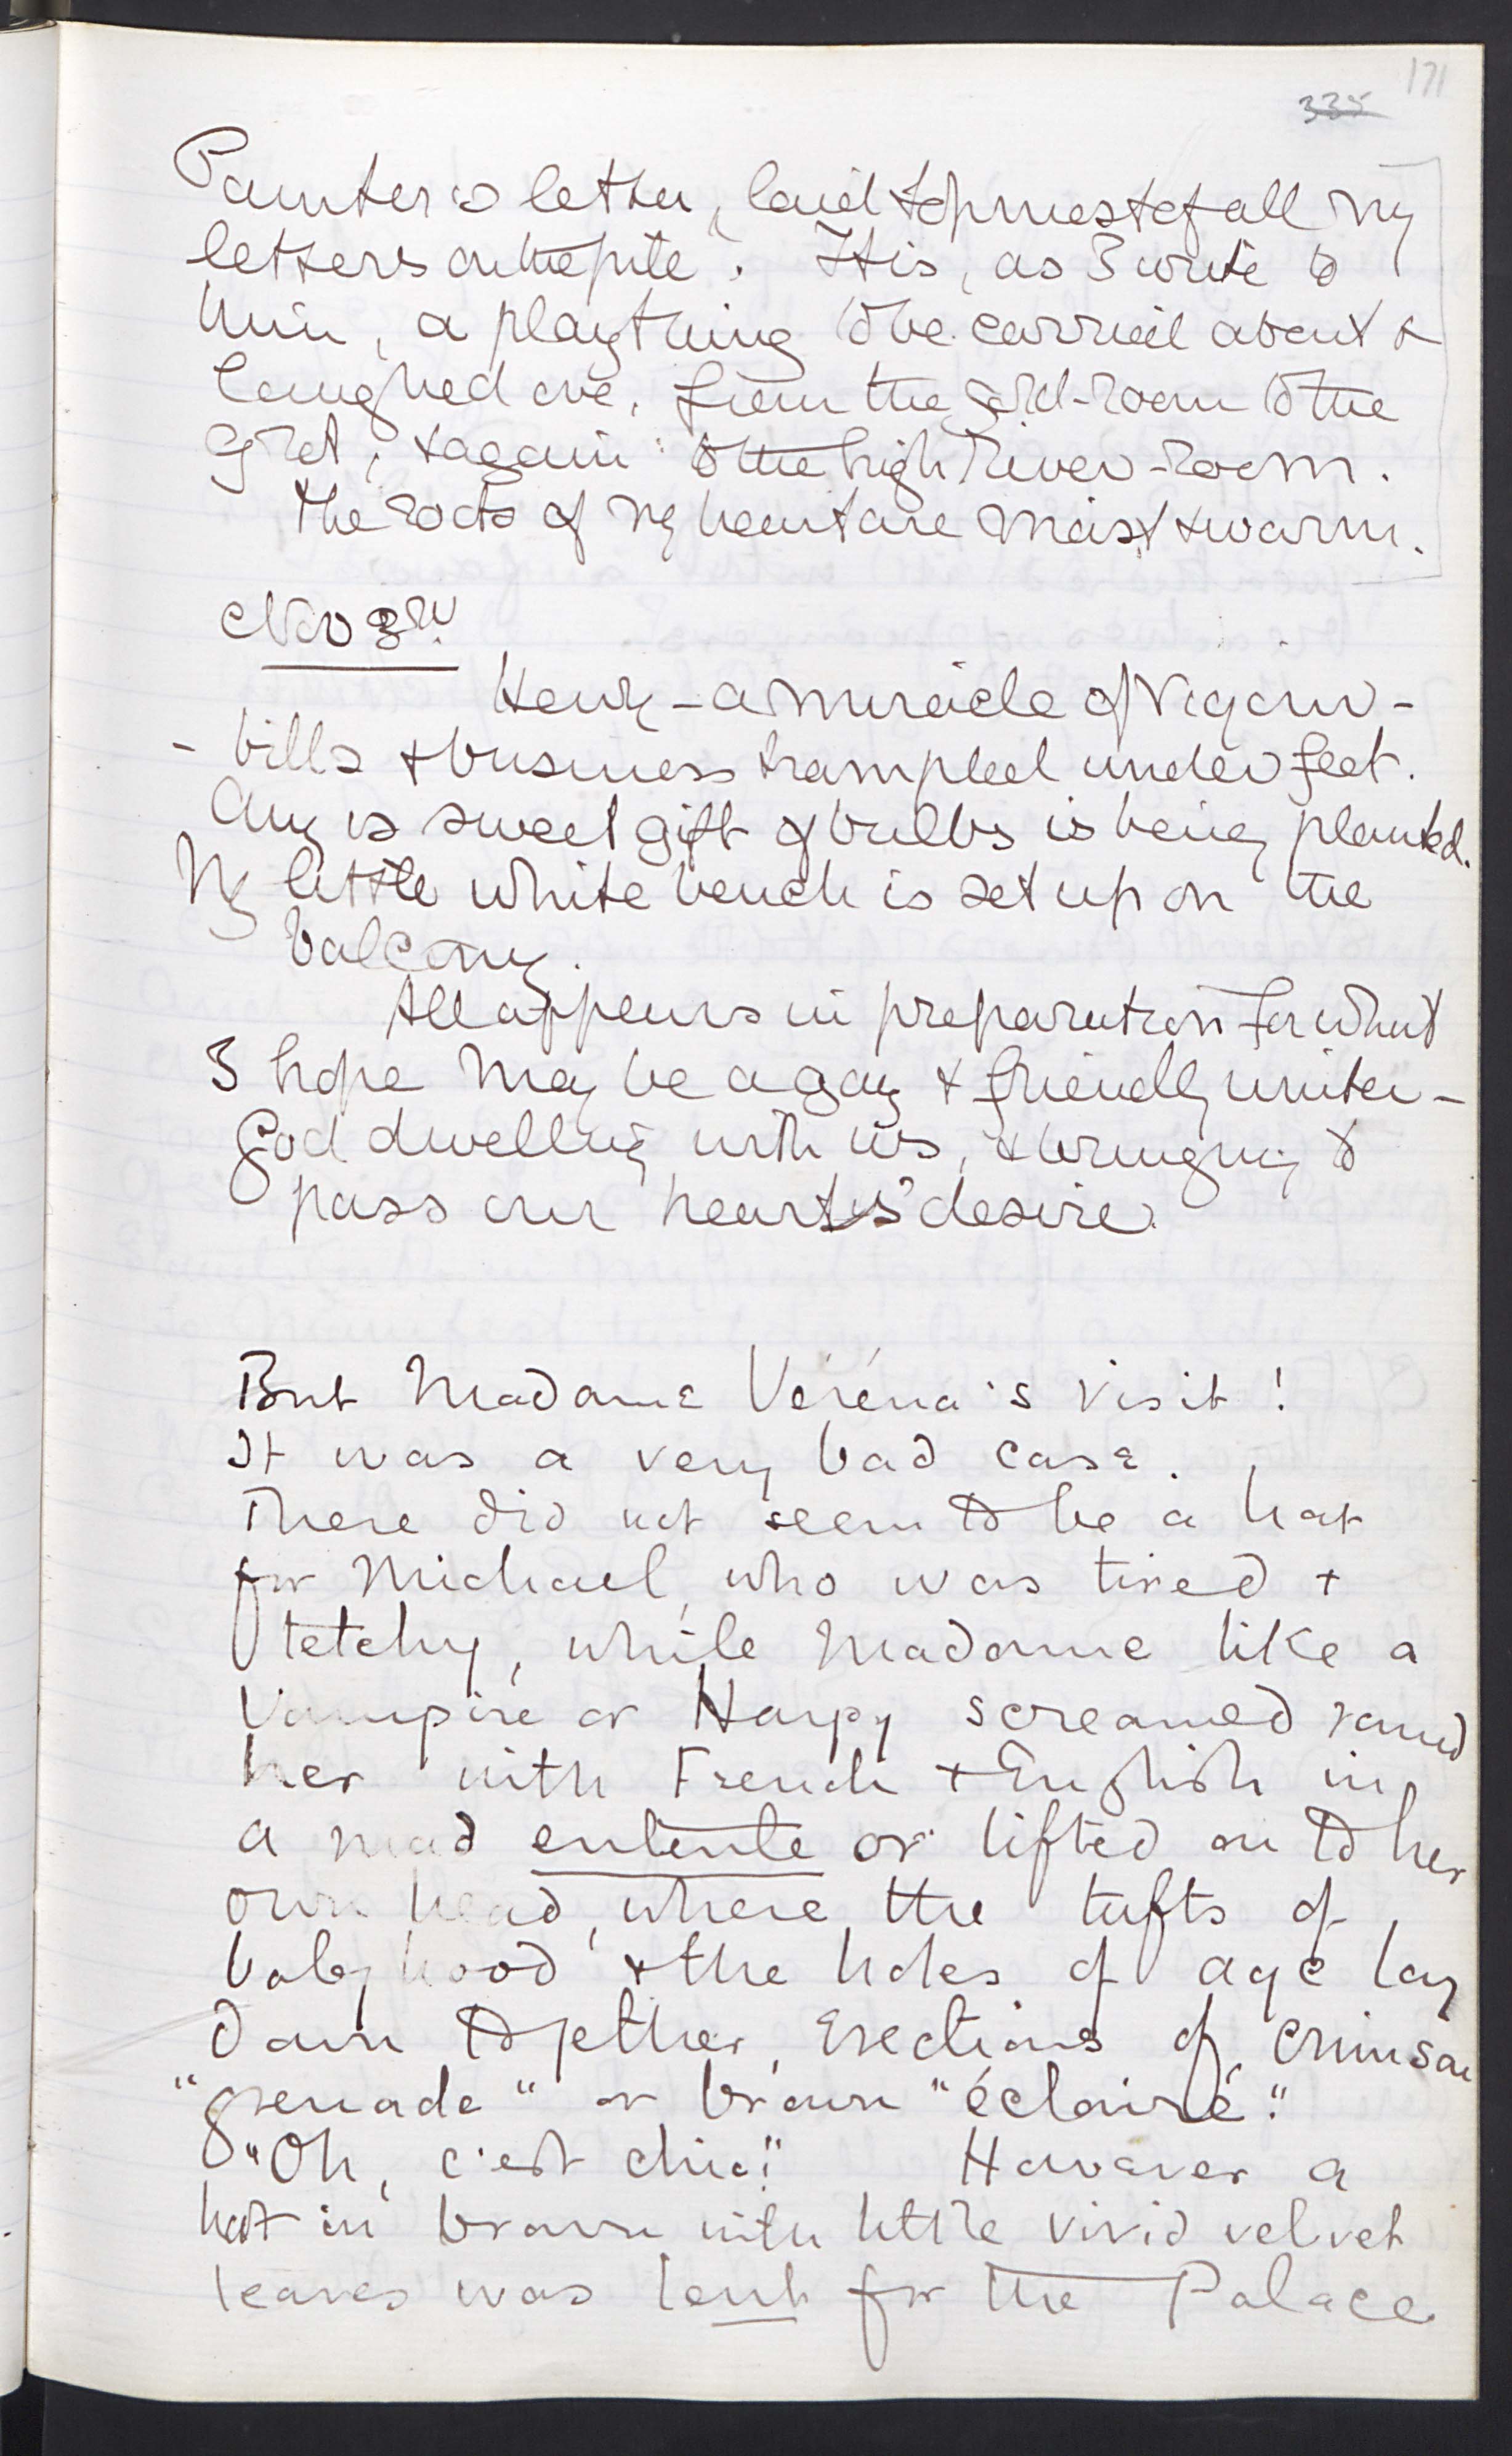 171
335
Painter's letter, laid topmost of all my
letters on the pile. It is, as I write to
him, a plaything to be carried about &
laughed over, from the gold-room to the
grot, & again to the high River-room.
The roots of my heart are moist & warm.
Nov 3rd.
Henry - a miracle of Vigour -
- bills & business trampled under feet.
Amy's sweet gift of bulbs is being planted.
My little white bench is set up on the
balcony.
All appears in preparation for what
I hope may be a gay & friendly winter -
God dwelling with us, & bringing to
pass our hearts' desire.
But Madame Veréna's visit!
It was a very bad case.
There did not seem to be a hat
for Michael, who was tired +
tetchy, while Madame like a
Vampire or Harpy screamed round
her with French + English in
a mad entente or lifted on to her
own head, where the tufts of
babyhood & the holes of age lay
down together, Erections of crimson
"grenade" or brown "éclairé."
"Oh, c'est chic!" However a
hat in brown with little vivid velvet
leaves was lent for the Palace